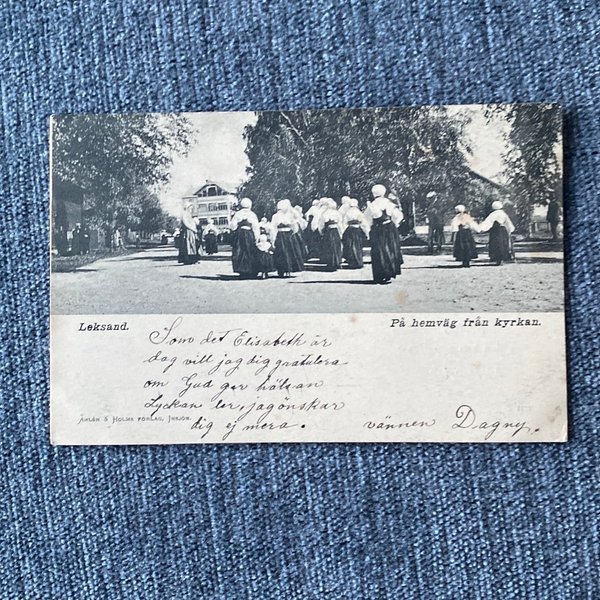 Leksand.
På hemväg från kyrkan.
Som det Elisabeth är
dag vill jag dig gratulera
om Gud ger hälsan
Lyckan ler, jag önskar
dig ej mera.
vännen Dagny.
ÅHLÉN & HOLMS FÖRLAG, INSJÖN.